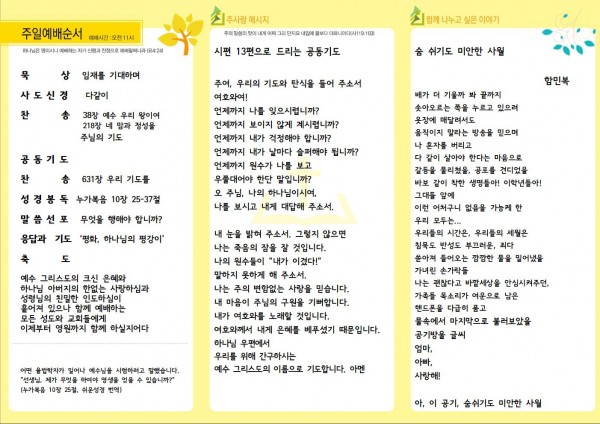 주일예배순서
예배시간 : 오전11시
하나님은 영이시니 예배하는 자가 신령과 진정으로 예배할찌니라 (요4:24)
묵 상 임재를 기대하며
사 도 신 경 다같이
찬 송 38장 예수 우리 왕이여
218장 네 맘과 정성을
주님의 기도
공 동 기 도
찬 송 631장 우리 기도를
성 경 봉 독 누가복음 10장 25-37절
말 씀 선 포 무엇을 행해야 합니까?
응답과 기도 '평화, 하나님의 평강이'
축 도
예수 그리스도의 크신 은혜와
하나님 아버지의 한없는 사랑하심과
성령님의 친밀한 인도하심이
흩어져 있으나 함께 예배하는
모든 성도와 교회들에게
이제부터 영원까지 함께 하실지어다
어떤 율법학자가 일어나 예수님을 시험하려고 말했습니다.
"선생님, 제가 무엇을 하여야 영생을 얻을 수 있습니까?"
(누가복음 10장 25절, 쉬운성경 번역)
주사랑 메시지
주의 말씀의 맛이 내게 어찌 그리 단지요 내입에 꿀보다 더하니이다(시119:103)
시편 13편으로 드리는 공동기도
주여, 우리의 기도와 탄식을 들어 주소서
여호와여!
언제까지 나를 잊으시렵니까?
언제까지 보이지 않게 계시렵니까?
언제까지 내가 걱정해야 합니까?
언제까지 내가 날마다 슬퍼해야 됩니까?
언제까지 원수가 나를 보고
우쭐대어야 한단 말입니까?
오 주님, 나의 하나님이시여,
나를 보시고 내게 대답해 주소서.
내 눈을 밝혀 주소서. 그렇지 않으면
나는 죽음의 잠을 잘 것입니다.
나의 원수들이 "내가 이겼다!"
말하지 못하게 해 주소서,
나는 주의 변함없는 사랑을 믿습니다.
내 마음이 주님의 구원을 기뻐합니다.
내가 여호와를 노래할 것입니다.
여호와께서 내게 은혜를 베푸셨기 때문입니다.
하나님 우편에서
우리를 위해 간구하시는
예수 그리스도의 이름으로 기도합니다. 아멘
함께 나누고 싶은 이야기
숨 쉬기도 미안한 사월
함민복
배가 더 기울까 봐 끝까지
솟아오르는 쪽을 누르고 있으려
옷장에 매달려서도
움직이지 말라는 방송을 믿으며
나 혼자를 버리고
다 같이 살아야 한다는 마음으로
갈등을 물리쳤을, 공포를 견디었을
바보 같이 착한 생명들아! 이학년들아!
그대들 앞에
이런 어처구니 없음을 가능케 한
우리 모두는...
우리들의 시간은, 우리들의 세월은
침묵도 반성도 부끄러운, 죄다
쏟아져 들어오는 깜깜한 물을 밀어냈을
가녀린 손가락들
나는 괜찮다고 바깥세상을 안심시켜주던,
가족들 목소리가 여운으로 남은
핸드폰을 다급히 품고
물속에서 마지막으로 불러보았을
공기방울 글씨
엄마,
아빠,
사랑해!
아, 이 공기, 숨쉬기도 미안한 사월